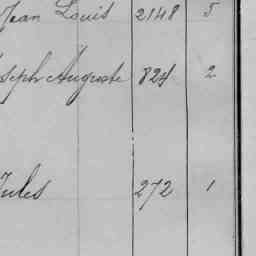 Jean Louis 2148 5
seph Auguste 824 2
Jules 272 1